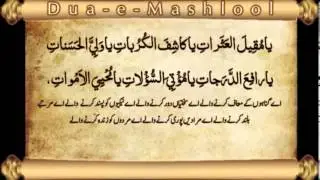 Dua-e-Mashlool
يَا مُقِيلَ الْعَثَرَاتِ يَا كَاشِفَ الْكُرُبَاتِ يَا وَلِيَّ الْحَسَنَاتِ
يَا رَافِعَ الدَّرَجَاتِ يَا مُؤْتِيَ السُّؤْلَاتِ يَا مُحْيِيَ الْاَمْوَاتِ،
اے گناہوں کے معاف کرنے والے اے سختیاں دور کرنے والے اے نیکیوں کو پسند کرنے والے اے مرتبے
بلند کرنے والے اے مرادیں پوری کرنے والے اے مردوں کو زندہ کرنے والے